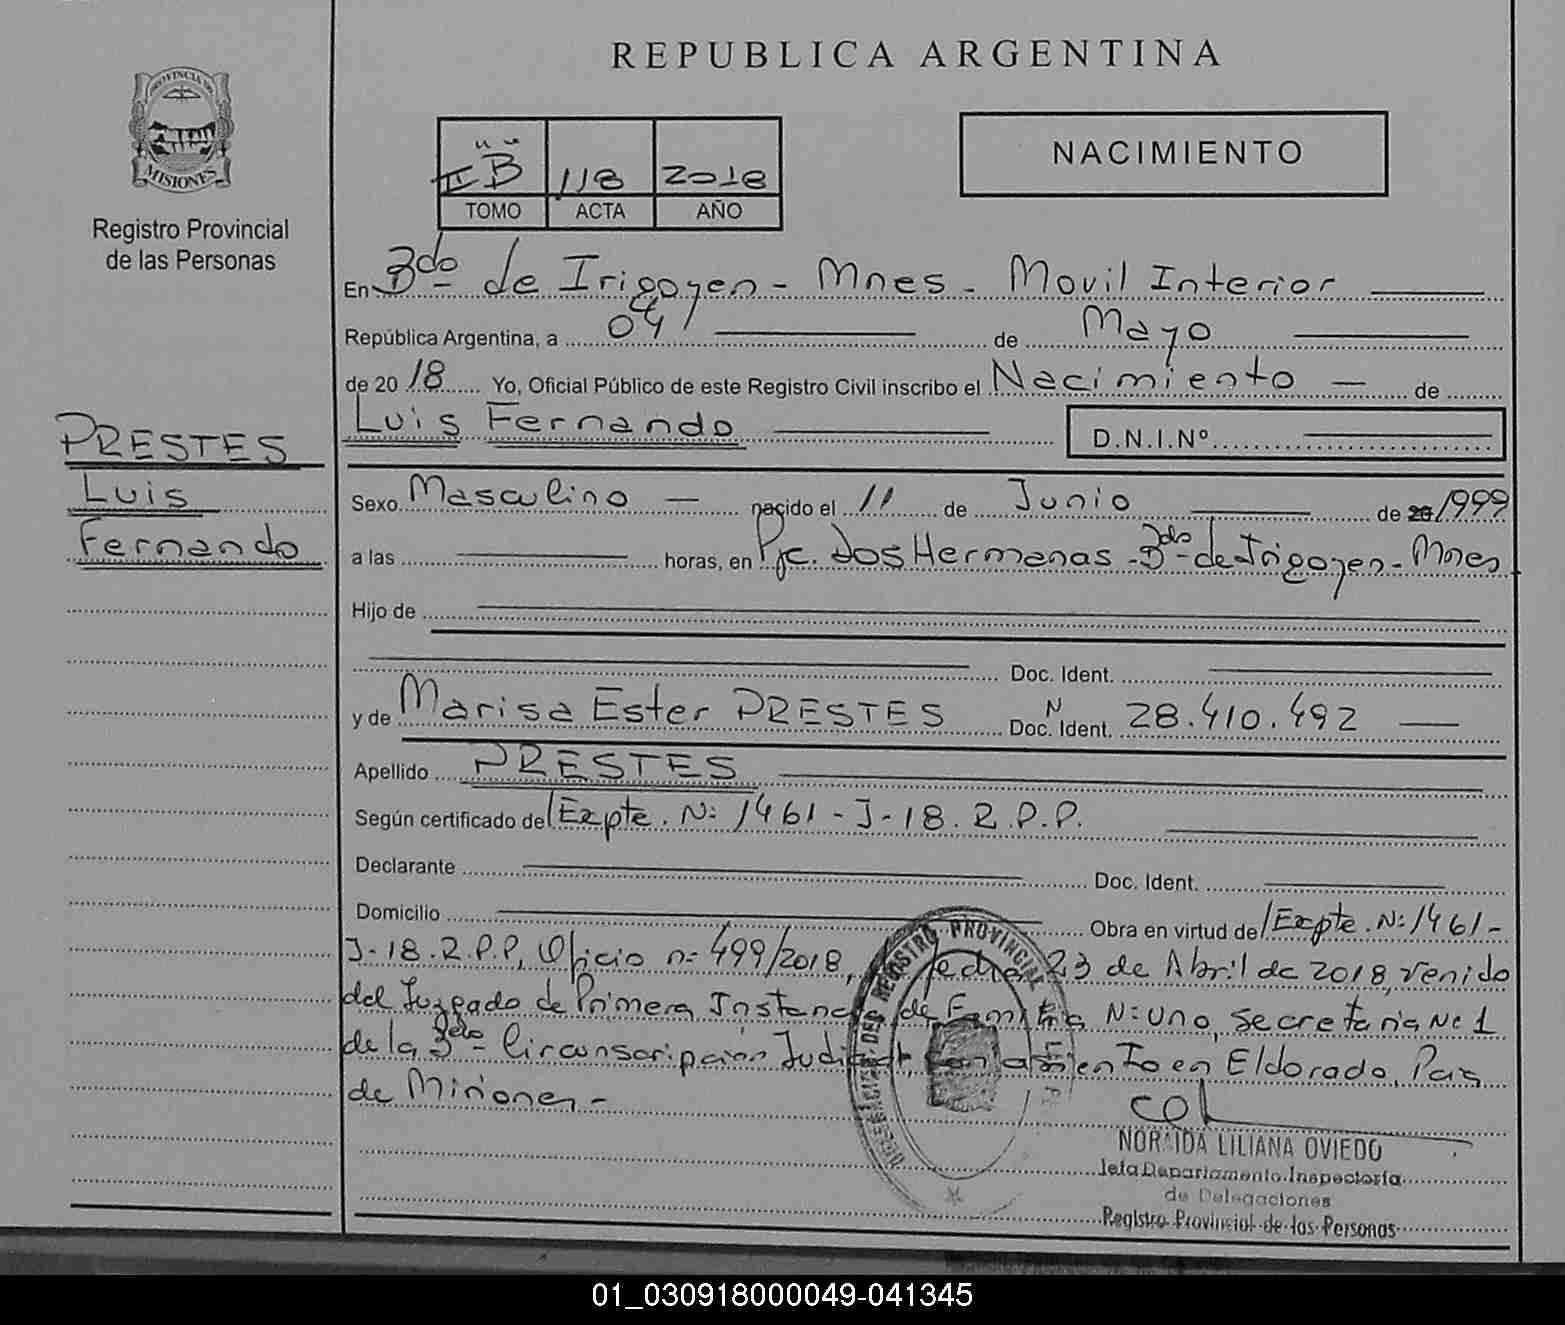 REPUBLICA ARGENTINA
PROVINCIA DE
MISIONES
Registro Provincial
de las Personas
II "B" 118 2018
TOMO ACTA AÑO
NACIMIENTO
En Bdo- de Irigoyen - Mnes - Movil Interior
República Argentina, a 04 de Mayo
de 2018 Yo, Oficial Público de este Registro Civil inscribo el Nacimiento — de
Luis Fernando D.N.I.Nº
PRESTES
Luis
Fernando
Sexo Masculino — nacido el 11 de Junio de 20 1999
a las horas, en Pje. dos Hermanas - Bdo- de Irigoyen - Mnes
Hijo de
Doc. Ident.
y de Marisa Ester PRESTES Doc. N Ident. 28.410.492
Apellido PRESTES
Según certificado de Expte. N: 1461 - J - 18. R.P.P.
Declarante Doc. Ident.
Domicilio Obra en virtud de Expte. N: 1461 -
J - 18. R.P.P, Oficio n= 499/2018, fecha 23 de Abril de 2018, venido
del Juzgado de Primera Instancia de Familia N: uno, secretaria Nº 1
de la 3ra- Circunscripción Judicial, con asiento en Eldorado, Pcia
de Misiones -
DELEGACION DEL REGISTRO PROVINCIAL
NORMIDA LILIANA OVIEDO
Jefa Departamento Inspectoría
de Delegaciones
Registro Provincial de las Personas
01_030918000049-041345